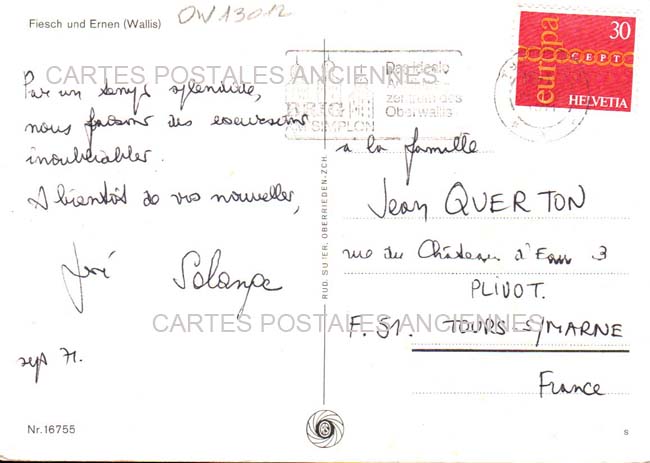 Fiesch und Ernen (Wallis)
OW13012
Par un temps splendide,
nous faisons des excursions
inoubliables.
A bientôt de vos nouvelles,
José Solange
sept 71.
Nr. 16755
RUD. SUTER, OBERRIEDEN-ZCH.
BRIG
AM SIMPLON
Das ideale
zentrum des
Oberwallis
europa
30
CEPT
HELVETIA
à la famille
Jean QUERTON
rue du Château d'Eau 3
PLIVOT.
F. 51. TOURS S/MARNE
France
s
CARTES POSTALES ANCIENNES
CARTES POSTALES ANCIENNES